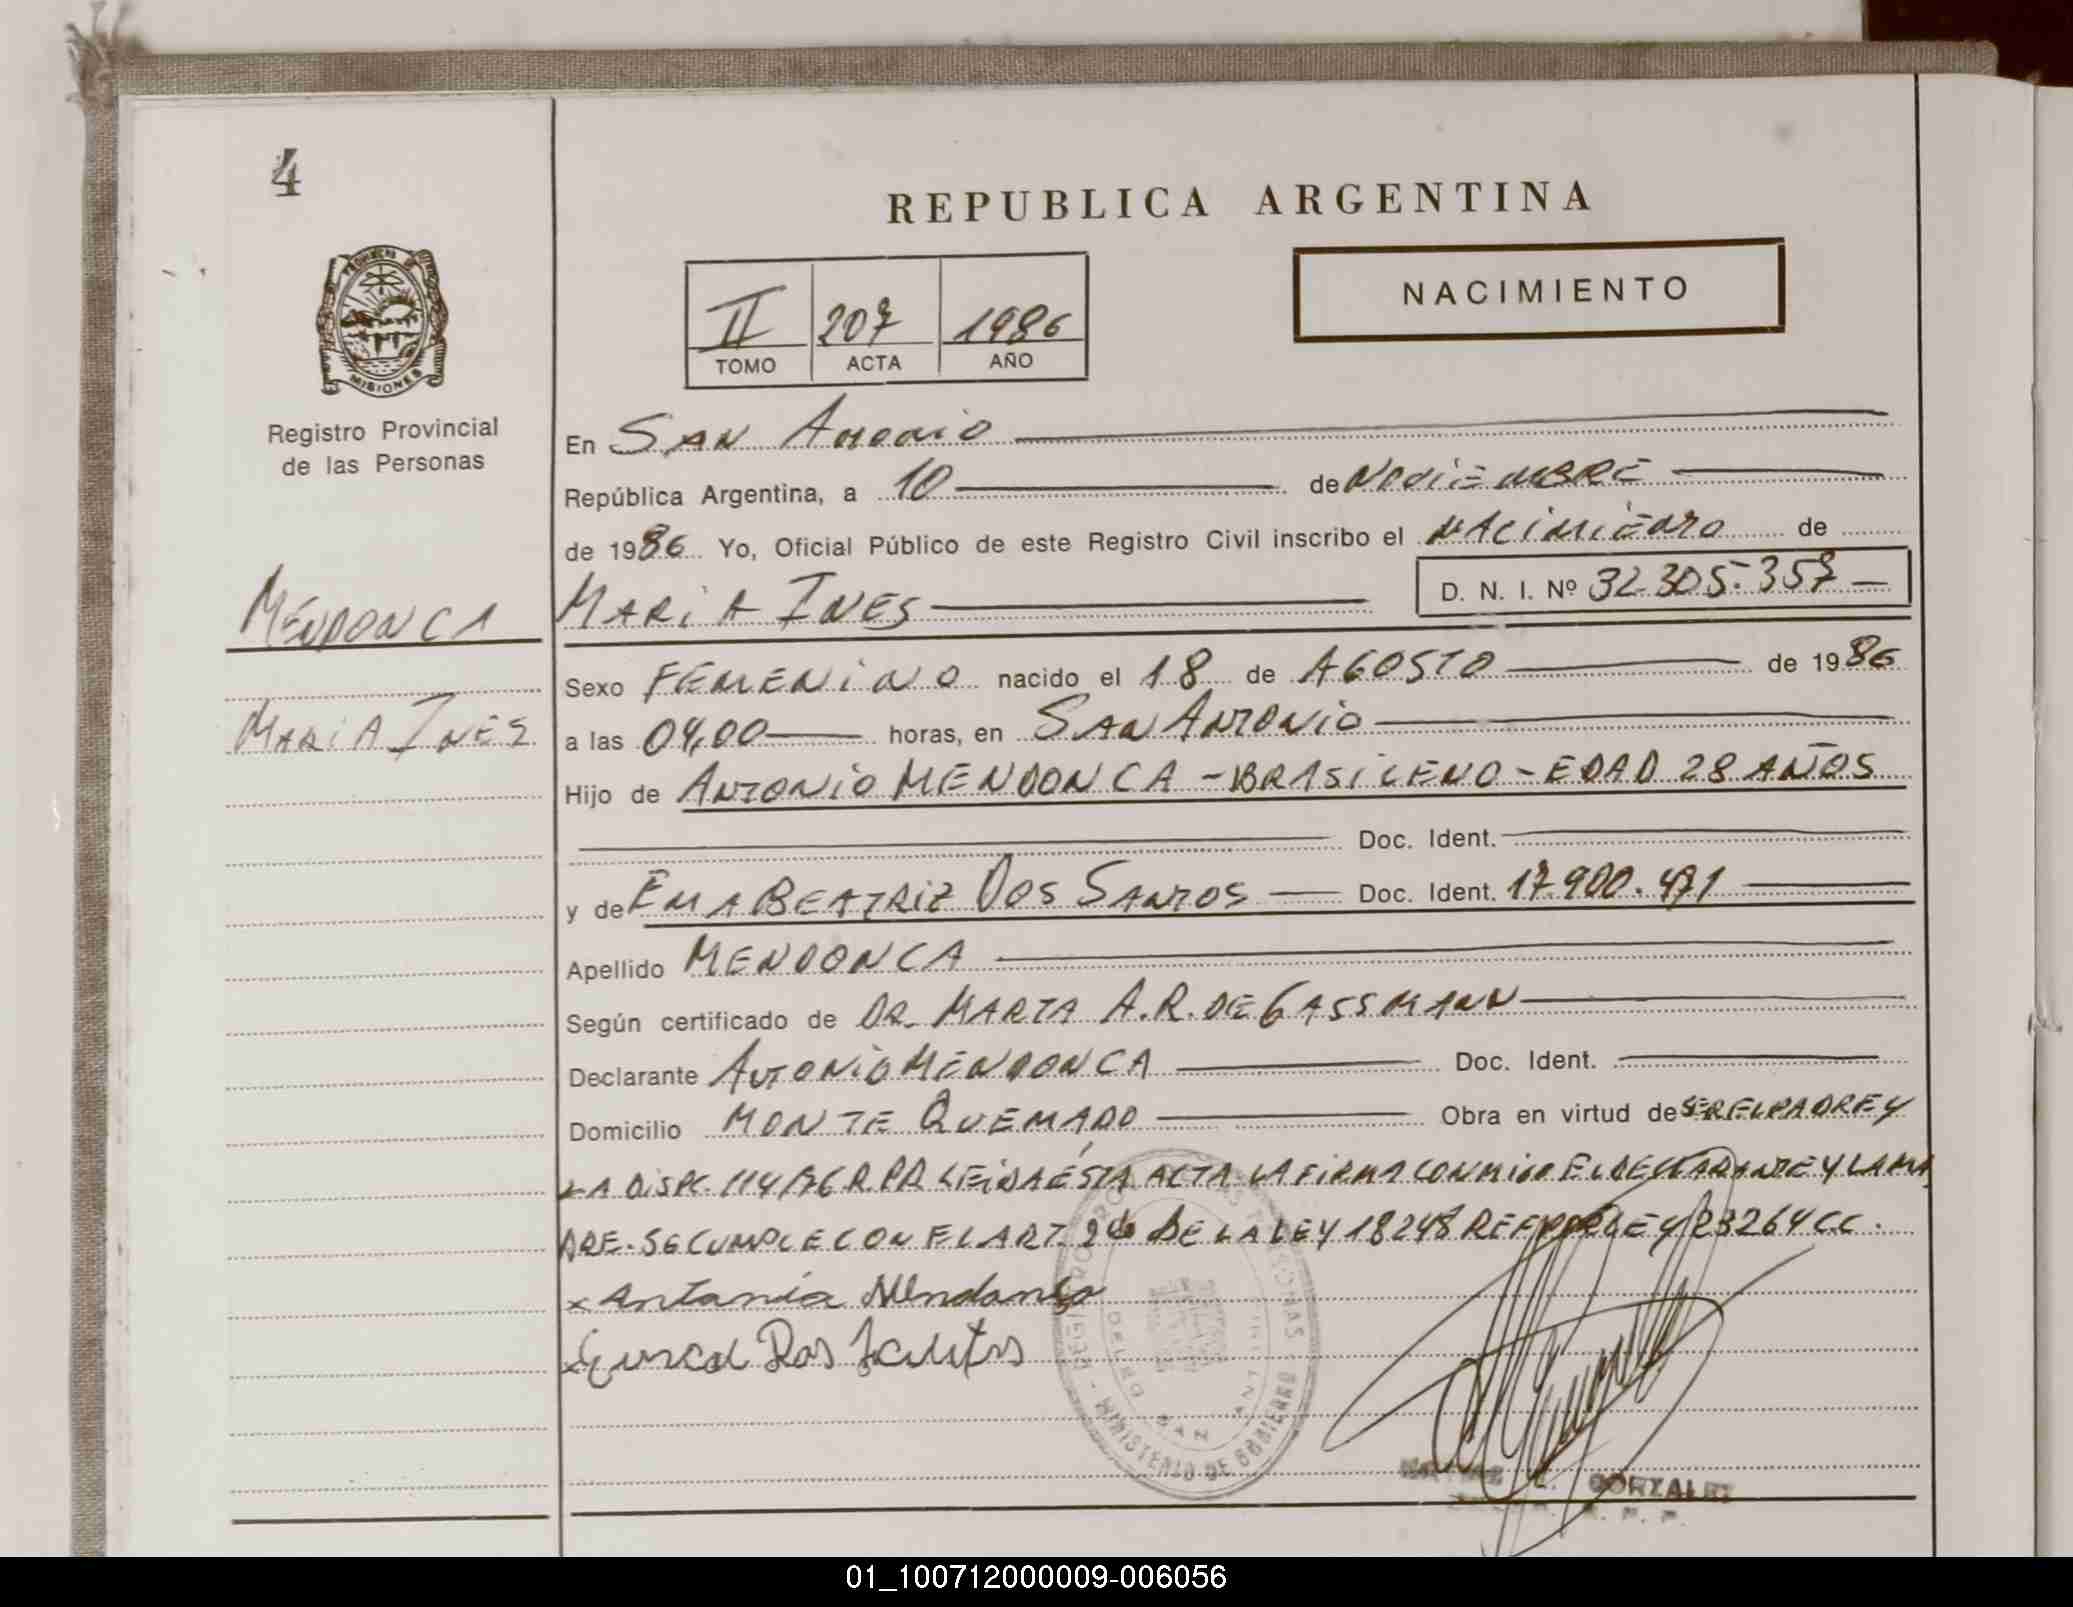 4
REPUBLICA ARGENTINA
NACIMIENTO
II 207 1986
TOMO ACTA AÑO
PROVINCIA DE MISIONES
Registro Provincial
de las Personas
En SAN ANTONIO
República Argentina, a 10 de NOVIEMBRE
de 1986 Yo, Oficial Público de este Registro Civil inscribo el NACIMIENTO de
MENDONCA
MARIA INES D. N. I. Nº 32.305.357
Sexo FEMENINO nacido el 18 de AGOSTO de 1986
MARIA INES
a las 04,00 horas, en SAN ANTONIO
Hijo de ANTONIO MENDONCA - BRASILENO - EDAD 28 AÑOS
Doc. Ident.
y de EMA BEATRIZ DOS SANTOS Doc. Ident. 17.900.471
Apellido MENDONCA
Según certificado de DR. MARTA A.R. DE GASSMANN
Declarante ANTONIO MENDONCA Doc. Ident.
Domicilio MONTE QUEMADO Obra en virtud de SER EL PADRE Y
LA DISPC. 114/76 R.P.P. LEIDA ÉSTA ACTA LA FIRMA CONMIGO EL DECLARANTE Y LA MA
DRE. SE CUMPLE CON EL ART. DE LA LEY 18248 REF POR LEY 23264 CC.
x Antonio Mendonça
x Dos Santos
MINISTERIO DE GOBIERNO
GONZALEZ
01_100712000009-006056